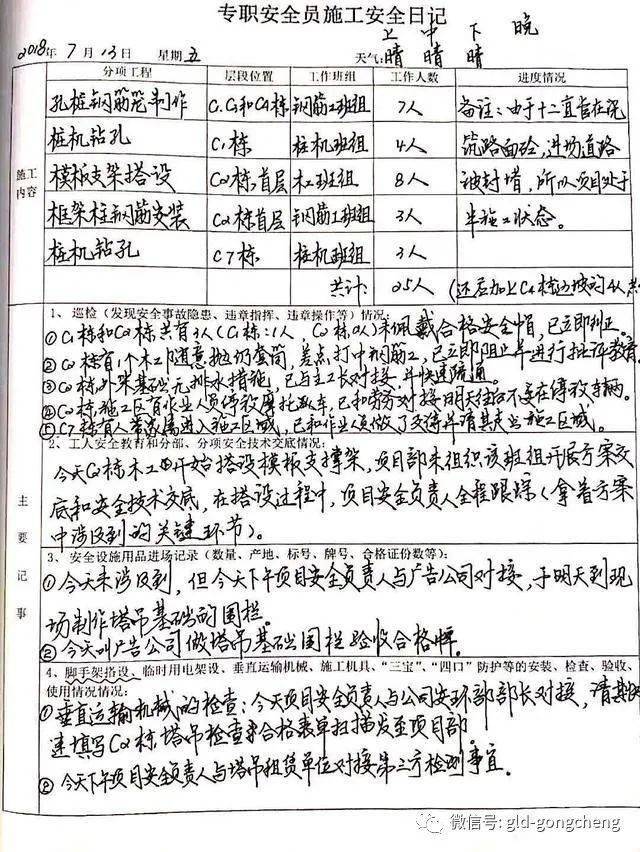 专职安全员施工安全日记
上 中 下 晚
2018年 7月13日 星期五 天气: 晴 晴 晴
分项工程 层段位置 工作班组 工作人数 进度情况
施工内容
孔桩钢筋笼制作 C1和C2栋 钢筋工班组 7人 备注:由于十二直管在浇
桩机钻孔 C1栋 桩机班组 4人 筑路面砼,进场道路
模板支架搭设 C2栋首层 木工班组 8人 被封堵,所以项目处于
框架柱钢筋安装 C2栋首层 钢筋工班组 3人 半施工状态。
桩机钻孔 C7栋 桩机班组 3人
共计: 25人 (还应加上C2栋边坡的4人
主要记事
1、巡检(发现安全事故隐患、违章指挥、违章操作等)情况:
①C1栋和C2栋共有3人(C1栋:1人, C2栋2人)未佩戴合格安全帽,已立即纠正。
②C2栋有1个木工随意抛扔套筒,差点打中钢筋工,已立即阻止并进行批评教育。
③C2栋外架基础无排水措施,已与主工长对接,并快速疏通。
④C2栋施工区有作业人员停放摩托车,已和劳务对接明天往后不要在停放车辆。
⑤C7栋有人带家属进入施工区域,已和作业人员做了交谈并请其走出施工区域。
2、工人安全教育和分部、分项安全技术交底情况:
今天C2栋木工开始搭设模板支撑架,项目部未组织该班组开展方案交
底和安全技术交底,在搭设过程中,项目安全负责人全程跟踪(拿着方案
中涉及到的关键环节)。
3、安全设施用品进场记录(数量、产地、标号、牌号、合格证份数等):
①今天未涉及到,但今天下午项目安全负责人与广告公司对接,于明天到现
场制作塔吊基础的围栏。
②今天叫广告公司做塔吊基础围栏验收合格牌。
4、脚手架搭设、临时用电架设、垂直运输机械、施工机具、“三宝”、“四口”防护等的安装、检查、验收、
使用情况情况:
①垂直运输机械的检查:今天项目安全负责人与公司安环部部长对接,请其
速填写C2栋塔吊检查合格表单扫描发至项目部。
②今天下午项目安全负责人与塔吊租赁单位对接第三方检测事宜。
微信号: gld-gongcheng